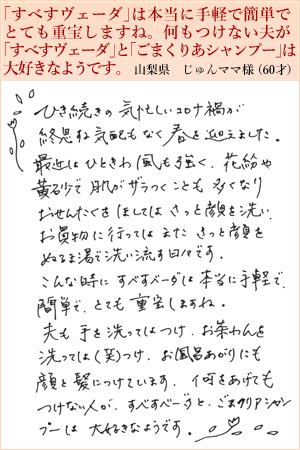 「すべすヴェーダ」は本当に手軽で簡単で
とても重宝しますね。何もつけない夫が
「すべすヴェーダ」と「ごまくりあシャンプー」は
大好きなようです。 山梨県 じゅんママ様(60才)
ひき続きの気忙しいコロナ禍が
終息する気配もなく春を迎えました。
最近はひときわ風も強く、花粉や
黄砂で肌がザラつくことも多くなり
おせんたくをほしてはさっと顔を洗い、
お買物に行ってはまたさっと顔を
ぬるま湯で洗い流す日々です。
こんな時にすべすべーダは本当に手軽で、
簡単で、とても重宝しますね。
夫も手を洗ってはつけ、お茶わんを
洗っては(笑)つけ、お風呂あがりにも
顔と髪につけています。何をあげても
つけない人が、すべすべーダと、ごまクリアシャン
プーは大好きなようです。